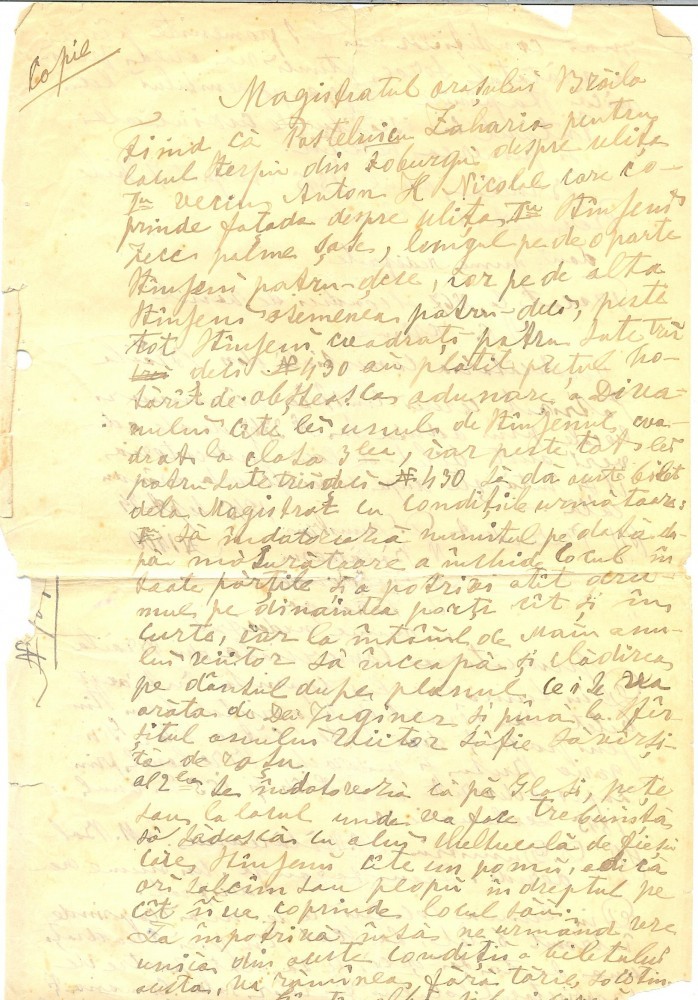 Copie
Magistratul orașului Brăila
Fiind că Postelnicu Zaharia pentru
locul sterpu din Zoburgu despre ulița
Iu vecin Anton H Nicolae care co-
prinde fațada despre ulița Iu Stînjeni
zece palme șase, lungul pe de o parte
Stînjeni patru-deci, iar pe de alta
Stînjeni asemenea patru-deci, peste
tot Stînjeni cuadrați patru sute trii
deci № 430 au plătit prețul ho-
tărît de obșteasca adunare a Diva-
nului cîte lei unul de Stînjenul cua-
drat la clasa 3lea, iar peste tot lei
patru sute trii deci № 430 Să dă acest bilet
dela Magistrat cu condițiile următoare:
I Să îndatorează numitul pe dată du-
pă măsurătoare a închide locul în
toate părțile și a potrivi atît dru-
mul pe dinaintea porții cît și în
curte, iar la întîiul de Main anu-
lui viitor să înceapă și clădirea
pe dânsul dupe planul ce i se va
arăta de Dei Inginer și pînă la sfîr-
șitul anului viitor săfie săvîrși-
tă de roșu
al 2lea Se îndatorează că pă
sau la locul unde va face trebuință
să sădească cu aluĭ cheltueală de fieși
care Stînjenu cîte un pomu, adică
ori salcîm sau plopu în dreptul pe
cît îi va coprinde locul său.
La împotrivă însă ne urmând vre
unia din aceste condiții a biletului
acesta, va rămînea fără tărie, socotin